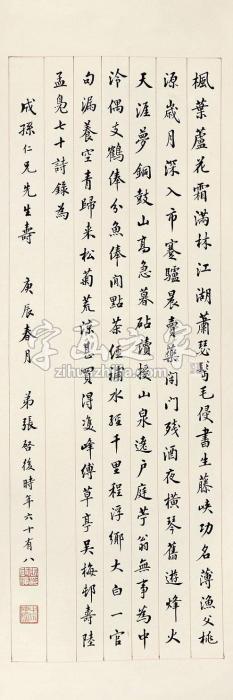 楓葉蘆花霜滿林江湖蕭瑟鬂毛侵書生藤峽功名薄漁父桃
源歲月深入市蹇驢晨賣藥閉門殘酒夜橫琴舊遊烽火
天涯夢銅鼓山高急暮砧讀授山泉遶戶庭苧翁無事為中
泠偶支鶴俸分魚俸閒點茶經補水經千里程浮鄉大白一官
句漏養空青歸來松菊荒涼甚買得峰縛草亭吳梅邨壽陸
孟鳧七十詩錄為
成孫仁兄先生壽 庚辰春月 弟張啓後時年六十有八
字画之家
zihuazhijia.com